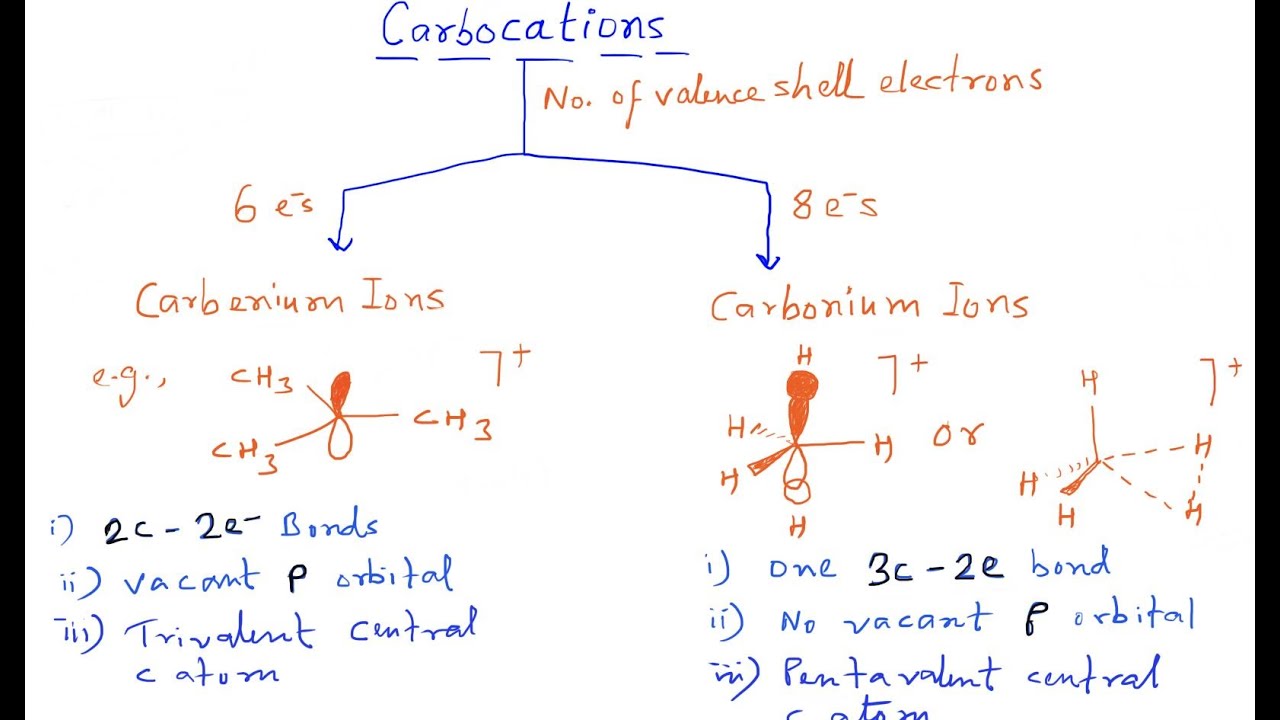 Carbocations
No. of valence shell electrons
6 e⁻s
8 e⁻s
Carbenium Ions
Carbonium Ions
e.g.,
CH3
CH3
CH3
⁊+
H
H
H
H
H
⁊+
Or
H
H
H
H
H
⁊+
i) 2c - 2e⁻ Bonds
ii) vacant p orbital
iii) Trivalent central
c atom
i) One 3c - 2e bond
ii) No vacant p orbital
iii) Pentavalent central
c atom